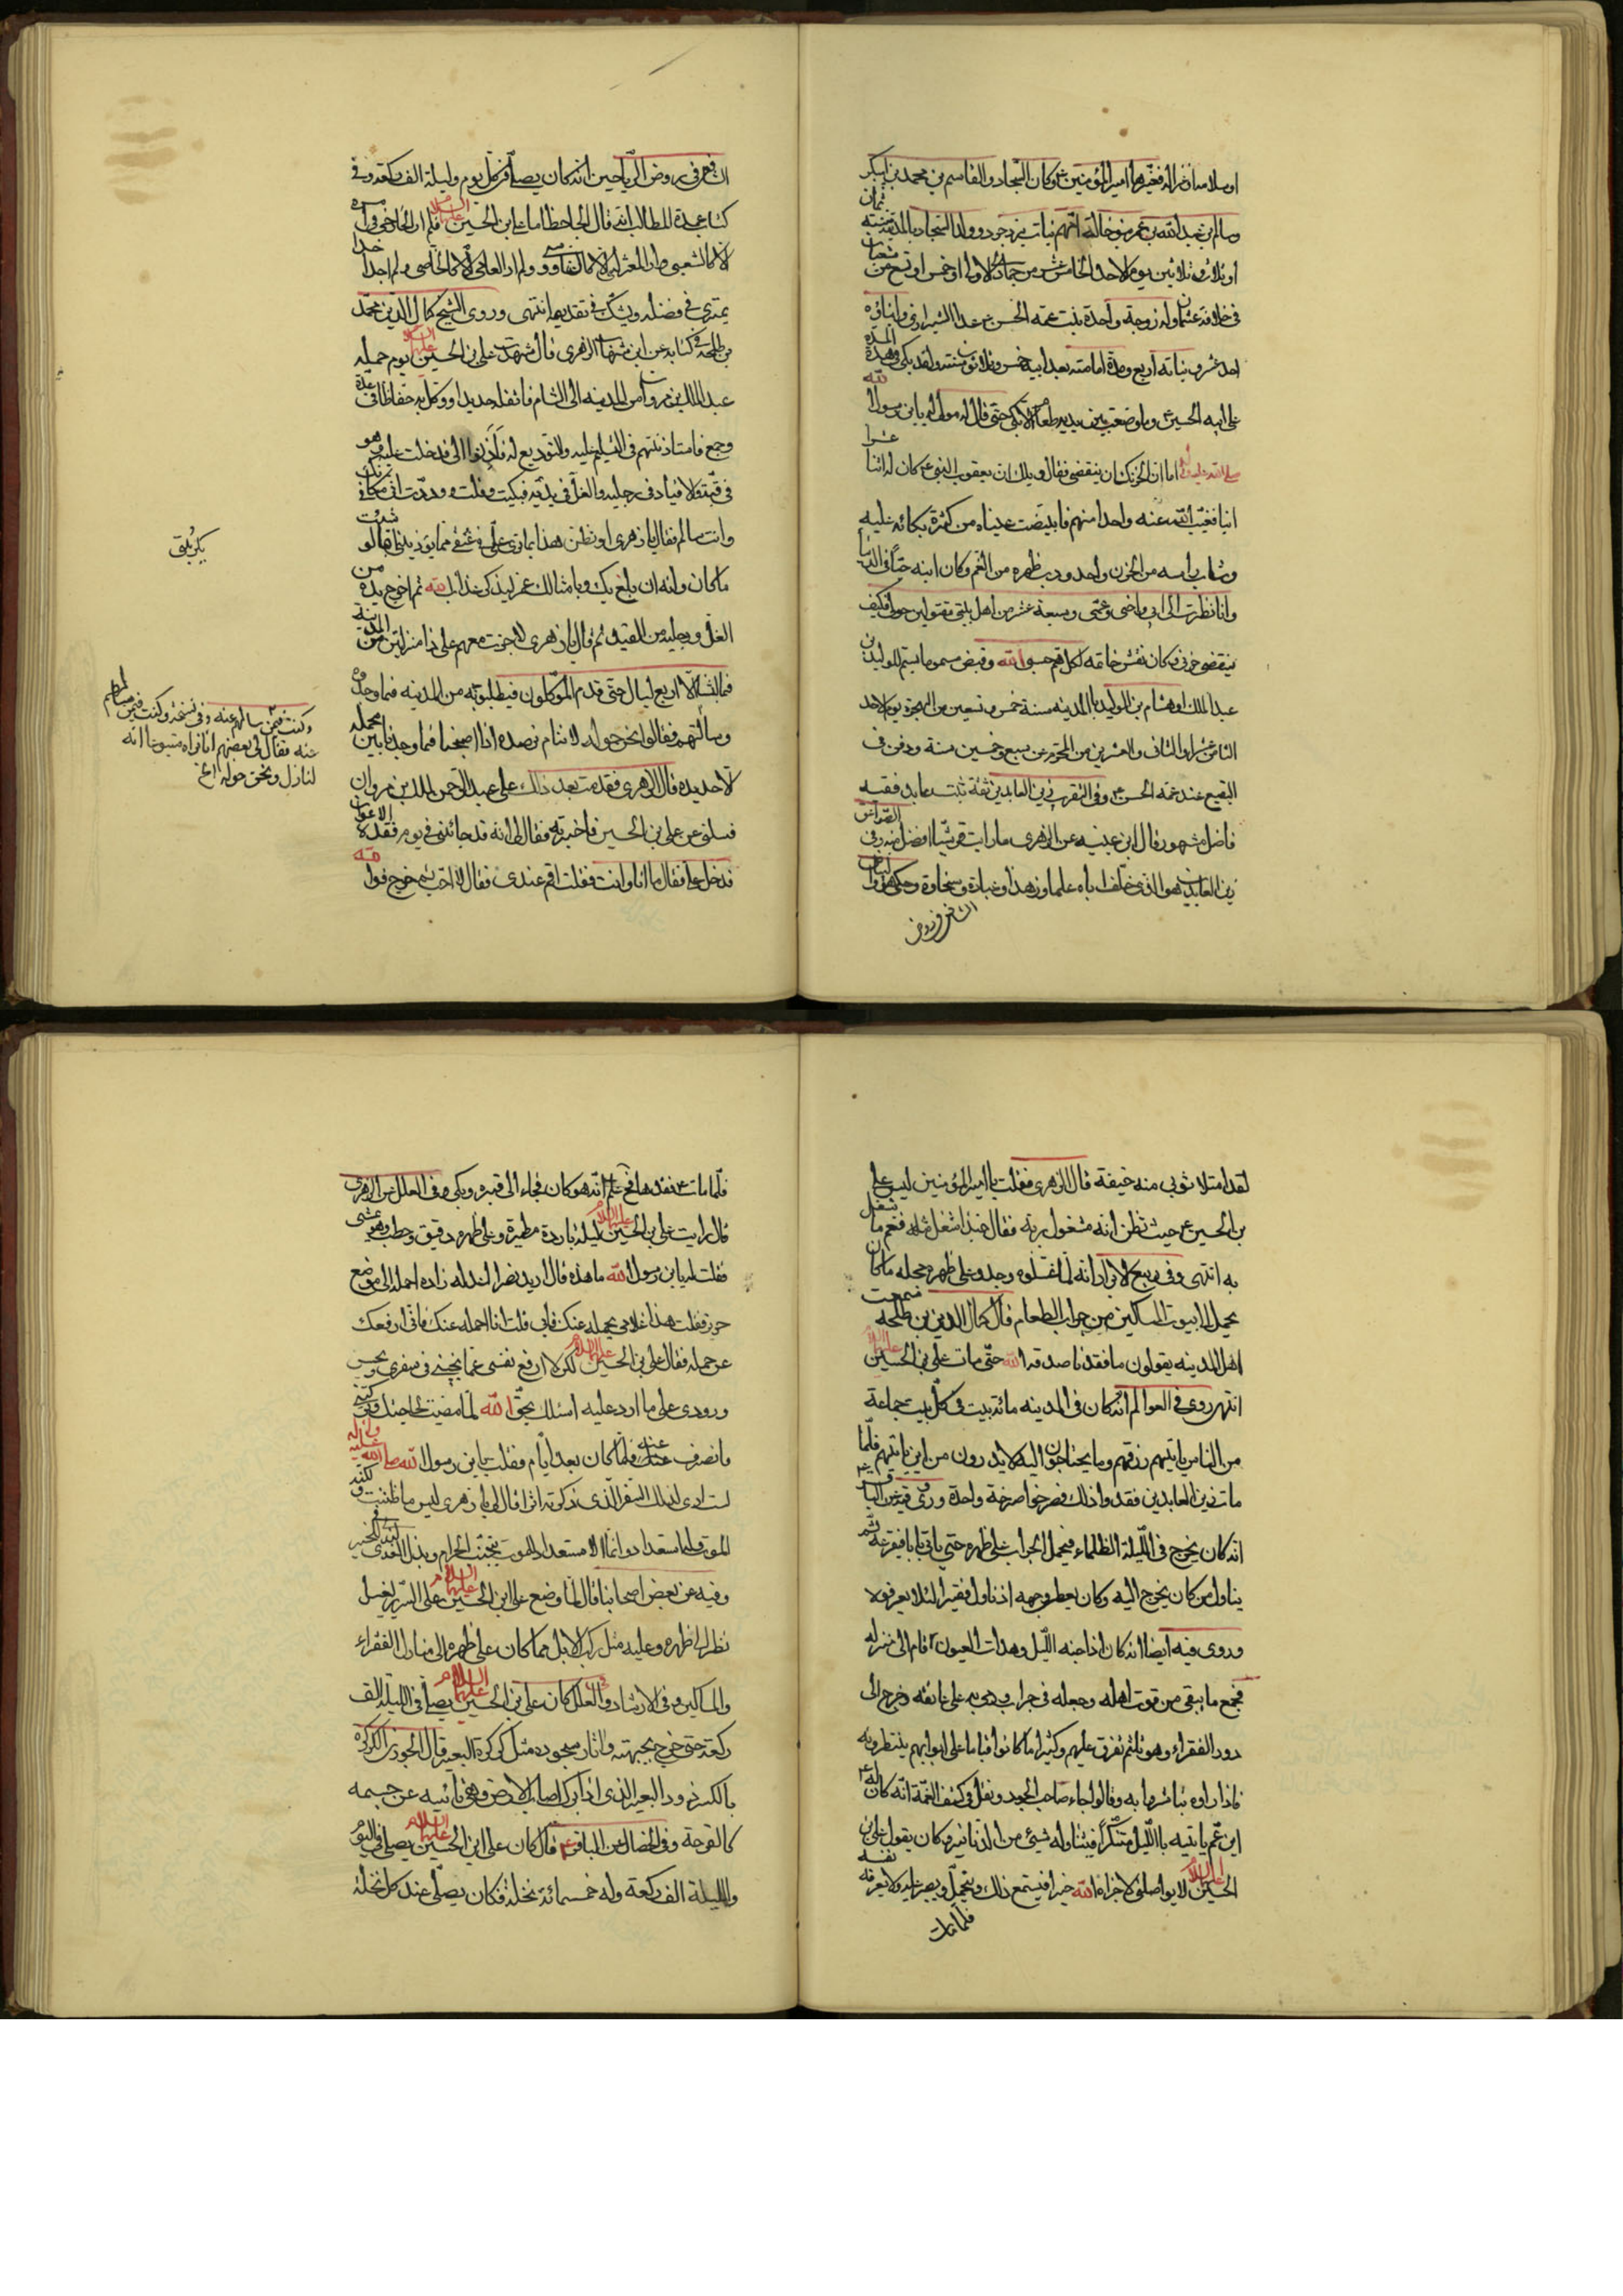 او سلامة او غزالة فغيرها امير المؤمنين ع وكان السجاد والقاسم بن محمد بن ابي بكر
وسالم بن عبد الله بن عمر بنو خالة امهم بنات يزدجرد وولد السجاد بالمدينة سنة ثمان
او ثلاث وثلاثين يوم الاحد الخامس عشر من جمادى الاولى او خمس او تسع من شعبان
في خلافة عثمان وله زوجة واحدة بنت عمه الحسن ع عدا السراري وابناؤه
احد عشر وبناته اربع ومدة امامته بعد ابيه خمس وثلاثون سنة ولقد بكى هذه المدة
على ابيه الحسين وما وضع بين يديه طعام الا بكى حتى قال له مولى له يابن رسول الله
صلى الله عليه وآله اما ان لحزنك ان ينقضي فقال ويلك ان يعقوب النبي ع كان له اثنا عشر
ابنا فغيب الله عنه واحدا منهم فابيضت عيناه من كثرة بكائه عليه
وشاب راسه من الحزن واحدودب ظهره من الغم وكان ابنه حيا في الدنيا
وانا نظرت الى ابي واخي وعمي وسبعة عشر من اهل بيتي مقتولين حولي فكيف
ينقضي حزني وكان نقش خاتمه لكل هم حسبي الله وقبض مسموما بسم الوليد بن
عبد الملك او هشام بن الوليد بالمدينة سنة خمس وتسعين من الهجرة يوم الاحد
الثامن عشر او الثاني والعشرين من المحرم عن سبع وخمسين سنة ودفن في
البقيع عند عمه الحسن ع وفي التقريب زين العابدين ثقة ثبت عابد فقيه
فاضل مشهور قال ابن عيينه عن الزهري ما رايت قرشيا افضل منه وفي الصواعق
زين العابدين هو الذي خلف اباه علما وزهدا وعبادة وسخاوة وحكى
الشافعي في روض
الشافعي في روض الرياحين انه كان يصلي في كل يوم وليلة الف ركعة وفي
كتاب عمدة المطالب انه قال الجاحظ اما علي بن الحسين عليهما السلام فلم ار الخارجي في امره
الا كالشيعي ولم ار المعتزلي الا كالخارجي ولم ار العامي الا كالخاصي ولم اجد احدا
يمتري في فضله ويشك في تقديمه انتهى وروى الشيخ كمال الدين محمد
بن طلحة في كتابه عن ابن شهاب الزهري قال شهدت علي بن الحسين عليهما السلام يوم حمله
عبد الملك بن مروان من المدينه الى الشام فاثقله حديدا ووكل به حفاظا في عدة
وجمع فاستاذنتهم في التسليم عليه والتوديع له فاذنوا لي فدخلت عليه وهو
في قبة والاقياد في رجليه والغل في يديه فبكيت وقلت وددت اني مكانك
وانت سالم فقال يا زهري او تظن هذا بما ترى علي وفي عنقي مما يؤذيني اما لو شئت
ما كان وانه ان بلغ بك وبامثالك غمر ليذكر عذاب الله ثم اخرج يده من
الغل ورجليه من القيد ثم قال يا زهري لا جزت معهم على ذا منزلتين من المدينة
فما لبثنا الا اربع ليال حتى قدم الموكلون به يطلبونه من المدينه فما وجدوه
وسالتهم فقالوا نحن حوله لا ننام نرصده اذا اصبحنا فما وجدنا بين محمله
الا حديده قال الزهري فقدمت بعد ذلك على عبد الملك بن مروان
فسئلني عن علي بن الحسين فاخبرته فقال لي انه قد جاءني في يوم فقده الاعوان
فدخل علي فقال ما انا وانت فقلت اقم عندي فقال لا احب ثم خرج فوالله
يكربنى
وكنت فيمن سالهم عنه وفي نسخة وكنت فيمن سالهم
عنه فقال لي بعضهم انا نراه متبوعا انه
لنازل ونحن حوله الخ
لقد امتلا ثوبي منه خيفة قال الزهري فقلت يا امير المؤمنين ليس علي
بن الحسين ع حيث تظن انه مشغول بربه فقال حبذا شغل مثله فنعم ما شغل
به انتهى وفي ربيع الابرار انه لما غسلوه وجدوا على ظهره مجله مما كان
يحمل الى بيوت المساكين من جراب الطعام قال كمال الدين بن طلحه سمعت
اهل المدينه يقولون ما فقدنا صدقة الله حتى مات علي بن الحسين عليهما السلام
انتهى روى في العوالم انه كان في المدينه مائة بيت في كل بيت جماعة
من الناس ياتيهم رزقهم وما يحتاجون اليه لا يدرون من اين ياتيهم فلما
مات زين العابدين فقدوا ذلك فصرخوا صرخة واحدة وروى فيه عن الباقر ع
انه كان يخرج في الليلة الظلماء فيحمل الجراب على ظهره حتى ياتي بابا فيقرعه ثم
يناول من كان يخرج اليه وكان يغطي وجهه اذ ناول فقيرا لئلا يعرفه
وروى فيه ايضا انه كان اذا جنه الليل وهدات العيون قام الى منزله
فجمع ما يبقى من قوت اهله وجعله في جراب ورمى به على عاتقه وخرج الى
دور الفقراء وهو متلثم يفرق عليهم وكثيرا ما كانوا قياما على ابوابهم ينتظرونه
فاذا راوه تباشروا به وقالوا جاء صاحب الجراب ونقل في كشف الغمة انه كان له ع
ابن عم ياتيه بالليل متنكرا فيناوله شيئ من الدنانير وكان يقول علي بن
الحسين عليهما السلام لا يواصلني لا جزاه الله خيرا فيسمع ذلك ويتحمل ويصبر عليه ولا يعرفه نفسه
فلما مات
فلما مات ع فقدها فح علم انه هو كان فجاء الى قبره وبكى وفي العلل عن الزهري
قال رايت علي بن الحسين عليهما السلام ليلة باردة مطيرة وعلى ظهره دقيق وحطب وهو يمشي
فقلت له يابن رسول الله ما هذا قال اريد سفرا اعد له زادا احمله الى موضع
حريز فقلت هذا غلامي يحمله عنك فابى قلت انا احمله عنك فاني ارفعك
عن حمله فقال علي بن الحسين عليهما السلام لكن لا ارفع نفسي عما ينجيني في سفري ويحسن
ورودي على ما ارد عليه اسئلك بحق الله لما مضيت لحاجتك وتركتني
فانصرف عنه فلما كان بعد ايام فقلت يابن رسول الله صلى الله عليه وآله
لست ارى لذلك السفر الذي ذكرته اثرا قال لي يا زهري ليس ما ظننت ولكنه
الموت وله استعد انما الاستعداد للموت تجنب الحرام وبذل الندى في الخير
وفيه عن بعض اصحابنا قال لما وضع علي بن الحسين عليهما السلام على السرير ليغسل
نظر الى ظهره وعليه مثل ركب الابل مما كان على ظهره الى منازل الفقراء
والمساكين وفي الارشاد والعلل كان علي بن الحسين عليهما السلام يصلي في الليلة الف
ركعة حتى خرج بجبهته واثار سجوده مثل كركرة البعير قال الجوهري الكركرة
بالكسر زور البعير الذي اذا برك اصاب الارض وهي ناتئيه عن جسمه
كالقرحة وفي الخصال عن الباقر ع قال كان علي بن الحسين عليهما السلام يصلي في اليوم
والليلة الف ركعة وله خمسمائة نخلة فكان يصلي عند كل نخلة